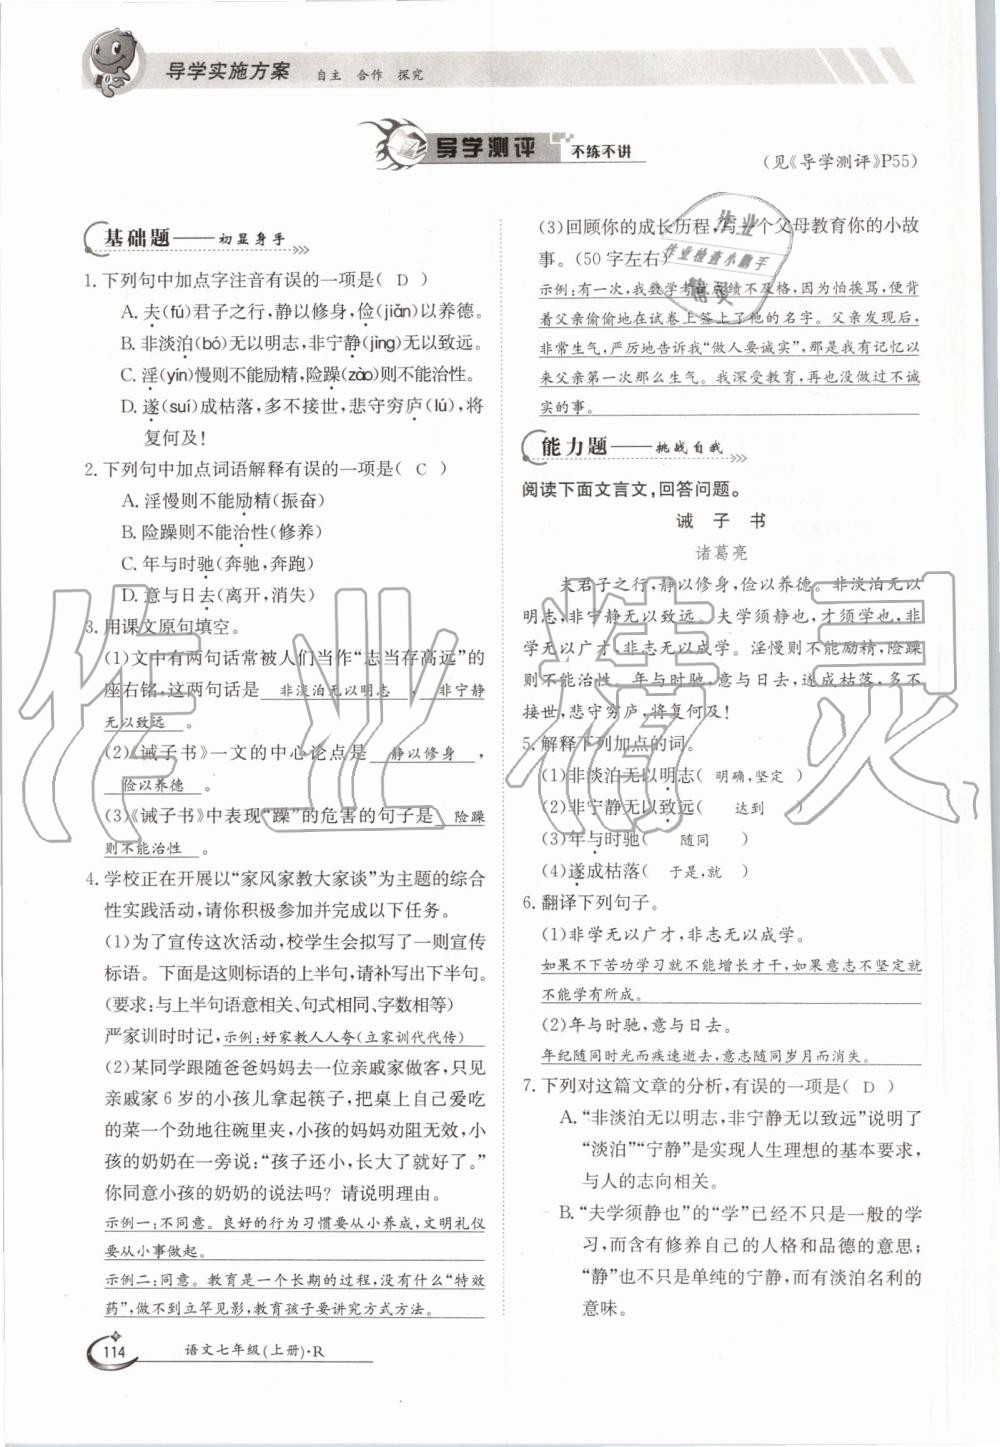 导学实施方案 自主 合作 探究
导学测评 不练不讲
(见《导学测评》P55)
基础题——初显身手
1. 下列句中加点字注音有误的一项是( D )
A. 夫(fú)君子之行,静以修身,俭(jiǎn)以养德。
B. 非淡泊(bó)无以明志,非宁静(jìng)无以致远。
C. 淫(yín)慢则不能励精,险躁(zào)则不能治性。
D. 遂(suì)成枯落,多不接世,悲守穷庐(lú),将
复何及!
2. 下列句中加点词语解释有误的一项是( C )
A. 淫慢则不能励精(振奋)
B. 险躁则不能治性(修养)
C. 年与时驰(奔驰,奔跑)
D. 意与日去(离开,消失)
3. 用课文原句填空。
(1)文中有两句话常被人们当作“志当存高远”的
座右铭,这两句话是 非淡泊无以明志 , 非宁静
无以致远 。
(2)《诫子书》一文的中心论点是 静以修身 ,
俭以养德 。
(3)《诫子书》中表现“躁”的危害的句子是 险躁
则不能治性 。
4. 学校正在开展以“家风家教大家谈”为主题的综合
性实践活动,请你积极参加并完成以下任务。
(1)为了宣传这次活动,校学生会拟写了一则宣传
标语。下面是这则标语的上半句,请补写出下半句。
(要求:与上半句语意相关、句式相同、字数相等)
严家训时时记,示例:好家教人人夸(立家训代代传)
(2)某同学跟随爸爸妈妈去一位亲戚家做客,只见
亲戚家6岁的小孩儿拿起筷子,把桌上自己爱吃
的菜一个劲地往碗里夹,小孩的妈妈劝阻无效,小
孩的奶奶在一旁说:“孩子还小,长大就会好的。”
你同意小孩的奶奶的说法吗?请说明理由。
示例一:不同意。良好的行为习惯要从小养成,文明礼仪
要从小事做起。
示例二:同意。教育是一个长期的过程,没有什么“特效
药”,做不到立竿见影,教育孩子要讲究方式方法。
114 语文七年级(上册)·R
(3)回顾你的成长历程,写一个父母教育你的小故
事。(50字左右)
示例:有一次,我数学考试成绩不及格,因为怕挨骂,便背
着父亲偷偷地在试卷上签上了他的名字。父亲发现后,
非常生气,严厉地告诉我“做人要诚实”,那是我有记忆以
来父亲第一次那么生气。我深受教育,再也没做过不诚
实的事。
能力题——挑战自我
阅读下面文言文,回答问题。
诫 子 书
诸葛亮
夫君子之行,静以修身,俭以养德。非淡泊无以
明志,非宁静无以致远。夫学须静也,才须学也,非学
无以广才,非志无以成学。淫慢则不能励精,险躁
则不能治性。年与时驰,意与日去,遂成枯落,多不
接世,悲守穷庐,将复何及!
5. 解释下列加点的词。
(1)非淡泊无以明志( 明确,坚定 )
(2)非宁静无以致远( 达到 )
(3)年与时驰( 随同 )
(4)遂成枯落( 于是,就 )
6. 翻译下列句子。
(1)非学无以广才,非志无以成学。
如果不下苦功学习就不能增长才干,如果意志不坚定就
不能学有所成。
(2)年与时驰,意与日去。
年纪随同时光而疾速逝去,意志随同岁月而消失。
7. 下列对这篇文章的分析,有误的一项是( D )
A. “非淡泊无以明志,非宁静无以致远”说明了
“淡泊”“宁静”是实现人生理想的基本要求,
与人的志向相关。
B. “夫学须静也”的“学”已经不只是一般的学
习,而含有修养自己的人格和品德的意思;
“静”也不只是单纯的宁静,而有淡泊名利的
意味。
作业
作业检查小帮手
精灵
作业精灵